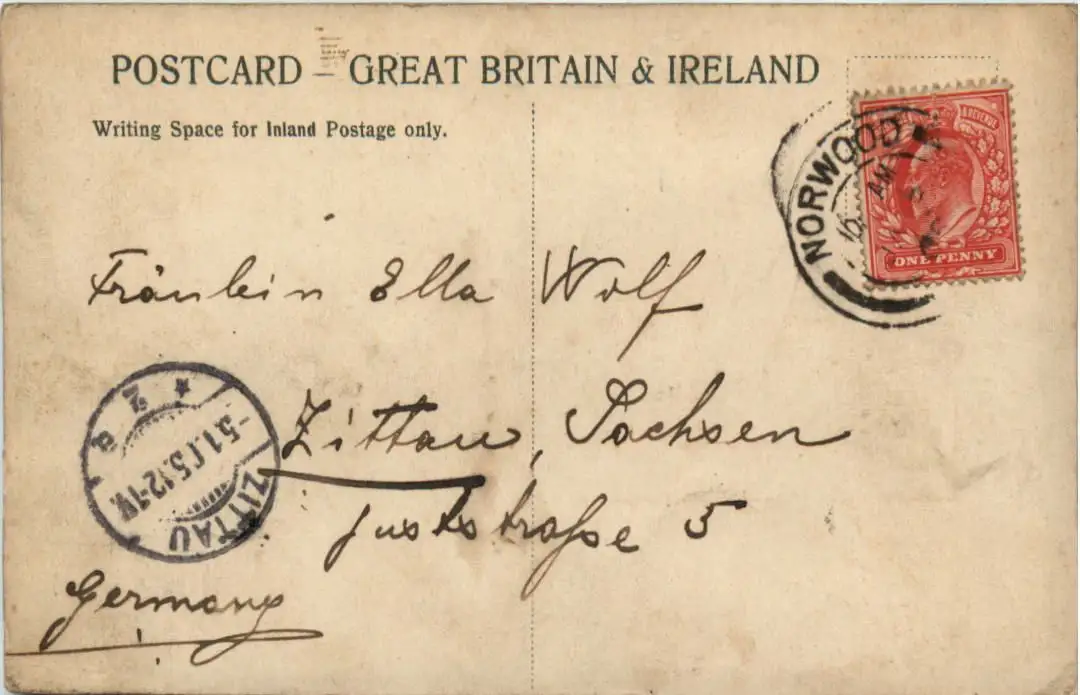 POSTCARD – GREAT BRITAIN & IRELAND
Writing Space for Inland Postage only.
& REVENUE
ONE PENNY
NORWOOD
AM
Fräulein Ella Wolf
Zittau, Sachsen
Juststraße 5
Germany
ZITTAU
-5.1.05.12-1N.